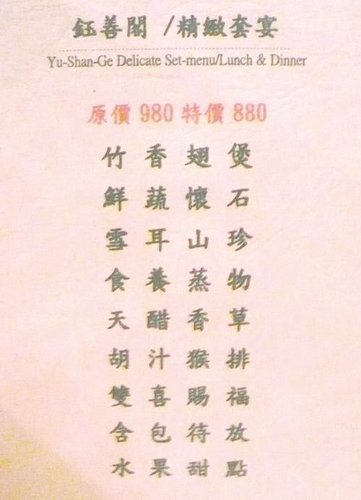 鈺善閣 /精緻套宴
Yu-Shan-Ge Delicate Set-menu/Lunch & Dinner
原價 980 特價 880
竹香翅煲
鮮蔬懷石
雪耳山珍
食養蒸物
天醋香草
胡汁猴排
雙喜賜福
含包待放
水果甜點